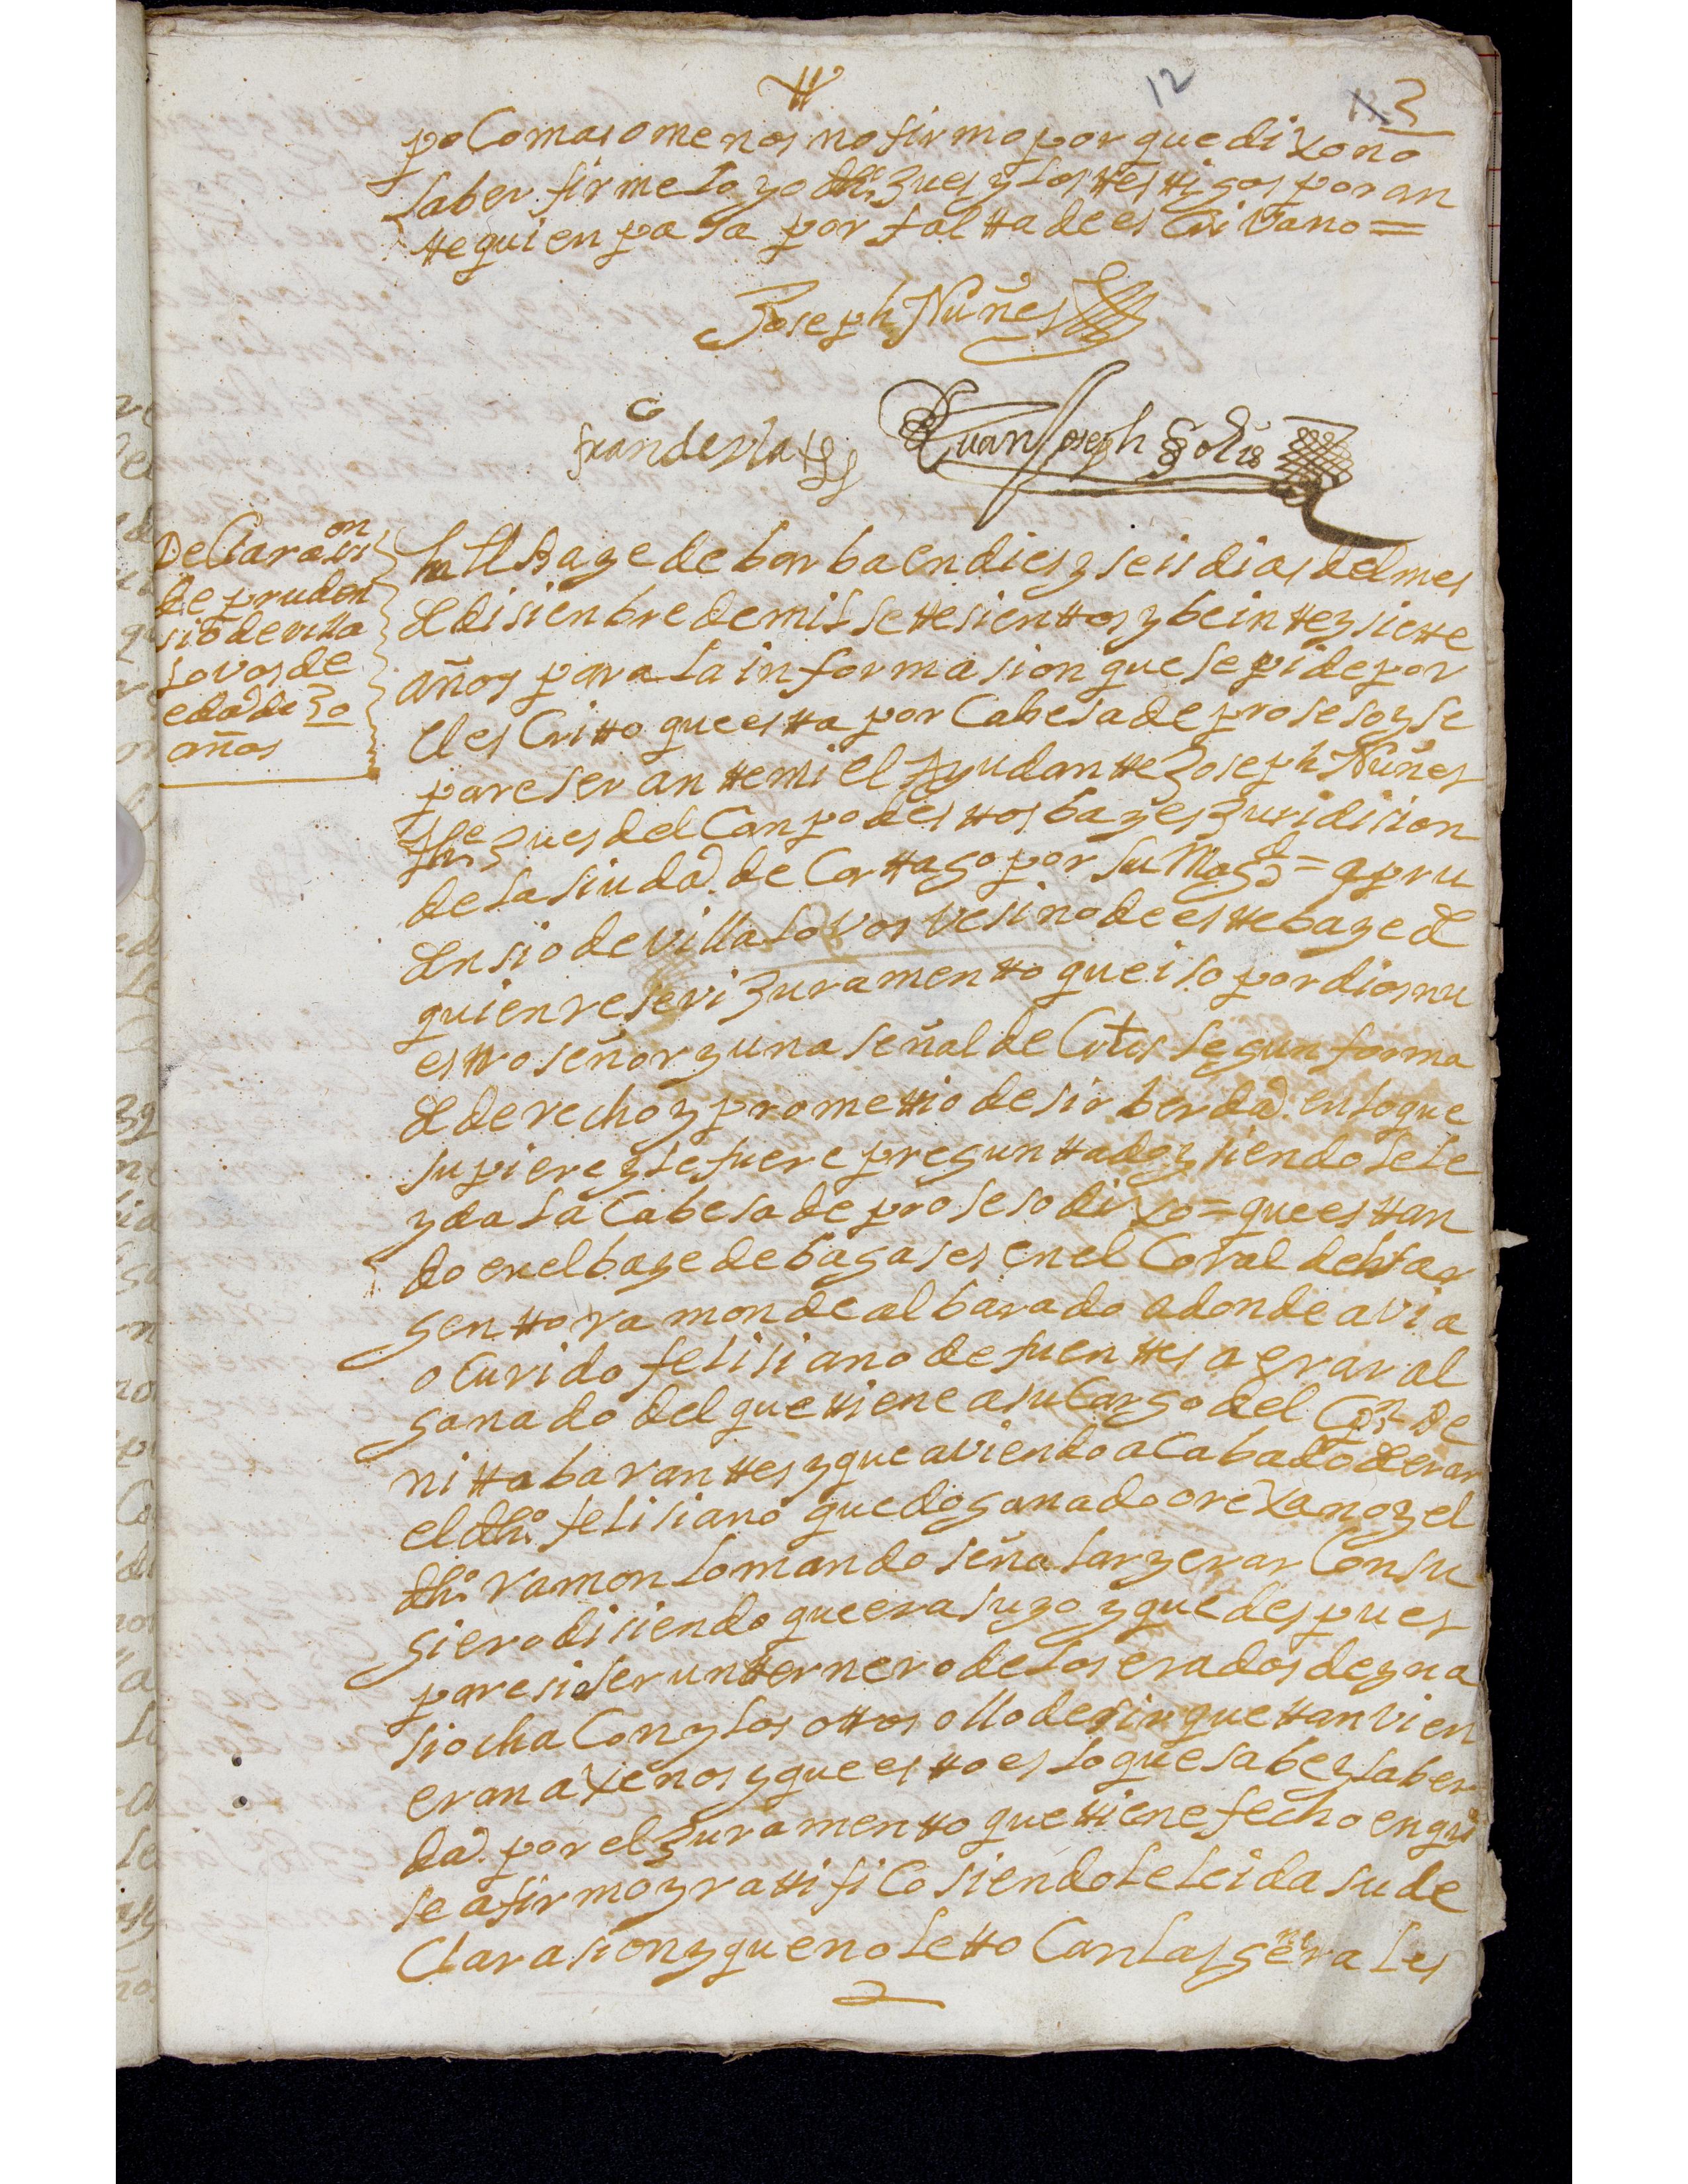 12
3
po Comas o menos no firmo por que dixo no
saber firmelo yo dho Jues y los testigos por an
te quien pasa por falta de es Crivano =
Joseph Nuñes
Juan Joseph Solis
DeClarasion
de pruden
sio de vila
lovos de
edad de 30
años
En El Baye de barba en dies y seis dias del mes
de disienbre de mil setesientos y beinte y siette
años para la informasion que se pide por
el es Critto que esta por Cabesa de proseso y se
pareser ante mi el Ayudante Joseph Nuñes
Jues del Canpo destos bayes Juridision
de la siudad de Cartago por su Magd = a pru
densio de villalovos vesino de este baye de
quien resevi Juramento que iso por dios nu
estro señor y una señal de Crus segun forma
de derecho y prometio desir berdad en lo que
supiere y le fuere preguntado y siendole le
yda la Cabesa de proseso dixo = que estan
do en el baye de bagases en el Coral del sar
gento ramon de albarado adonde avia
oCurido felisiano de fuentes a erar al
ganado del que tiene a su Cargo del Capn De
nitto barantes y que aviendo aCabado de erar
el dho felisiano quedo ganado orexano y el
dho ramon lo mando señalar y erar Con su
siero disiendo que era suyo y que despues
paresio ser un ternero de los erados de yna
siocha Con y los otros ollo desir que tanvien
eran axenos y que esto es lo que sabe y la ber
dad por el Juramento que tiene fecho en que
se afirmo y ratifiCo siendole leida su de
Clarasion y que no le toCan las generales